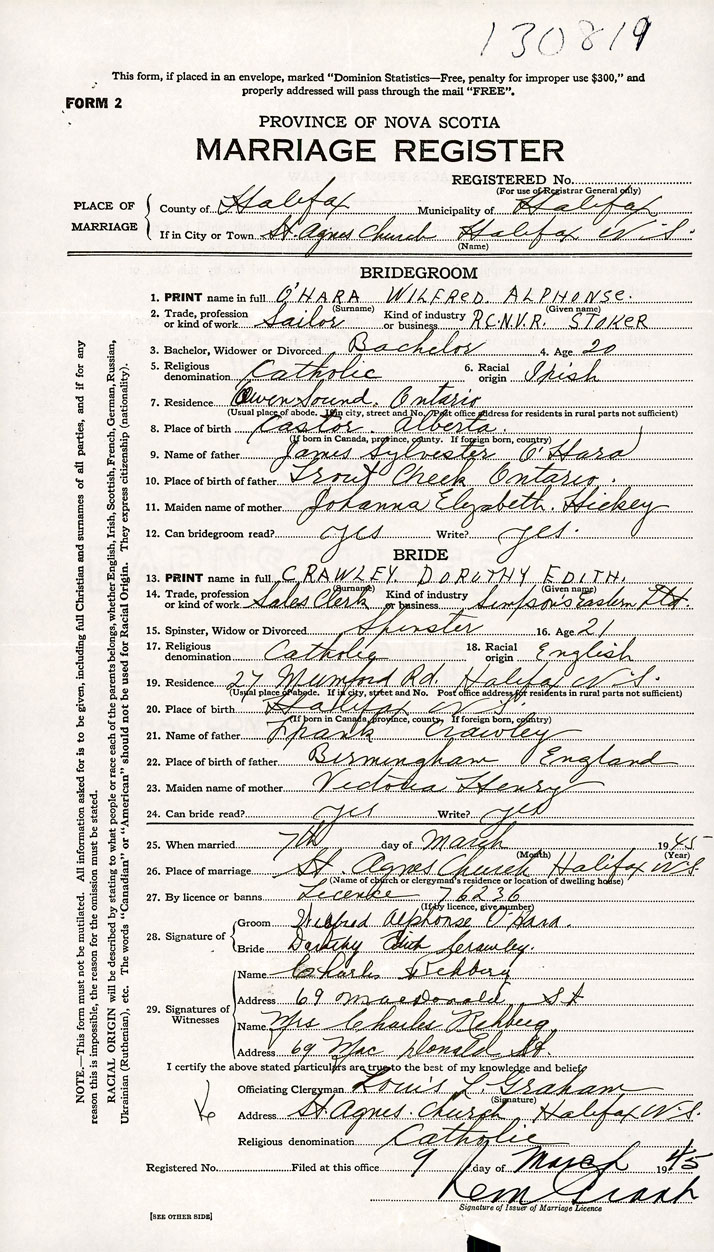 130819
This form, if placed in an envelope, marked "Dominion Statistics—Free, penalty for improper use $300," and
properly addressed will pass through the mail "FREE".
FORM 2
PROVINCE OF NOVA SCOTIA
MARRIAGE REGISTER
REGISTERED No.
(For use of Registrar General only)
PLACE OF MARRIAGE
County of Halifax Municipality of Halifax
If in City or Town St. Agnes Church Halifax N.S.
(Name)
BRIDEGROOM
1. PRINT name in full O'HARA WILFRED. ALPHONSE.
(Surname) (Given name)
2. Trade, profession or kind of work Sailor Kind of industry or business R.C.N.V.R. STOKER
3. Bachelor, Widower or Divorced Bachelor 4. Age 20
5. Religious denomination Catholic 6. Racial origin Irish
7. Residence Owen Sound. Ontario
(Usual place of abode. If in city, street and No. Post office address for residents in rural parts not sufficient)
8. Place of birth Castor. Alberta.
(If born in Canada, province, county. If foreign born, country)
9. Name of father James Sylvester O'Hara
10. Place of birth of father Trout Creek Ontario.
11. Maiden name of mother Johanna Elizabeth. Hickey
12. Can bridegroom read? yes Write? yes.
BRIDE
13. PRINT name in full CRAWLEY. DOROTHY EDITH.
(Surname) (Given name)
14. Trade, profession or kind of work Sales Clerk Kind of industry or business Simpsons Eastern Ltd.
15. Spinster, Widow or Divorced Spinster 16. Age 21
17. Religious denomination Catholic 18. Racial origin English
19. Residence 27 Mumford Rd. Halifax N.S.
(Usual place of abode. If in city, street and No. Post office address for residents in rural parts not sufficient)
20. Place of birth Halifax N.S.
(If born in Canada, province, county. If foreign born, country)
21. Name of father Frank Crawley
22. Place of birth of father Birmingham England
23. Maiden name of mother Victoria Henry
24. Can bride read? yes Write? yes
25. When married 7th day of March 1945
(Month) (Year)
26. Place of marriage St. Agnes Church Halifax N.S.
(Name of church or clergyman's residence or location of dwelling house)
27. By licence or banns Licence 76236
(If by licence, give number)
28. Signature of
Groom Wilfred Alphonse O'Hara.
Bride Dorothy Edith Crawley.
29. Signatures of Witnesses
Name Charles Rehberg
Address 69 MacDonald St
Name Mrs Charles Rehberg
Address 69 MacDonald St.
I certify the above stated particulars are true to the best of my knowledge and belief.
Officiating Clergyman Louis L. Graham
(Signature)
Address St. Agnes. Church Halifax N.S.
Religious denomination Catholic
Registered No. Filed at this office 9 day of March 1945
Signature of Issuer of Marriage Licence
[SEE OTHER SIDE]
NOTE.—This form must not be mutilated. All information asked for is to be given, including full Christian and surnames of all parties, and if for any
reason this is impossible, the reason for the omission must be stated.
RACIAL ORIGIN will be described by stating to what people or race each of the parents belongs, whether English, Irish, Scottish, French, German, Russian,
Ukrainian (Ruthenian), etc. The words "Canadian" or "American" should not be used for Racial Origin. They express citizenship (nationality).